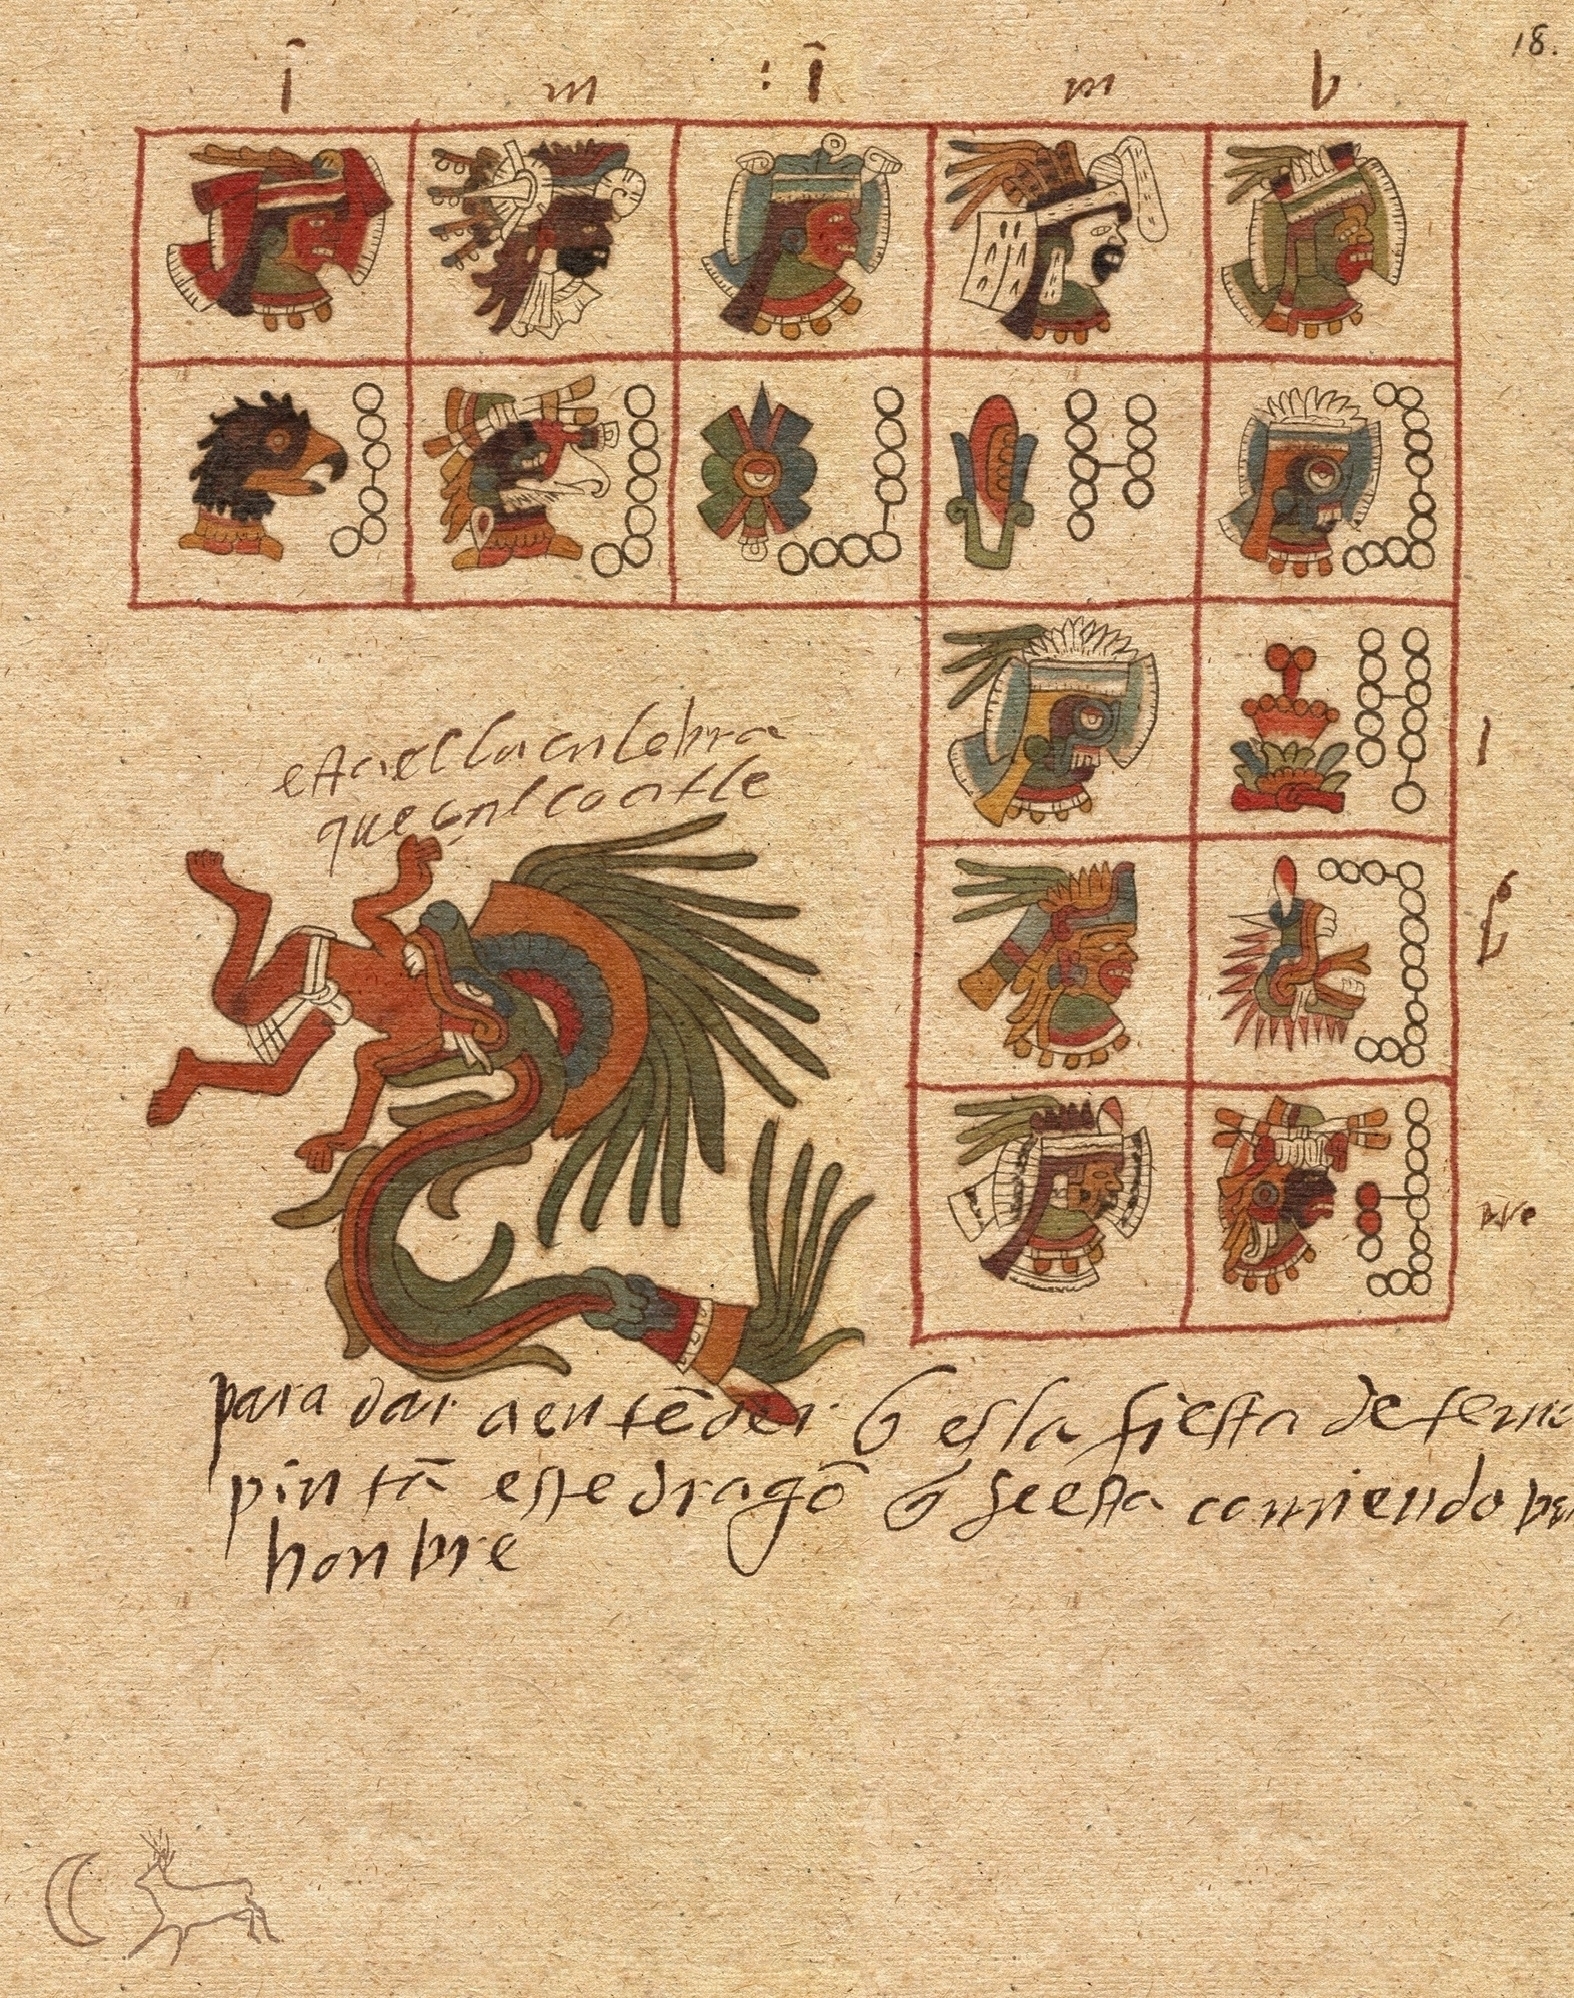 18.
i m : i m b
esta es la culebra
que çal coatle
1
b
para dar a entēder q̃ es la fiesta de temor
pintā este dragō q̃ se esta comiendo
honbre